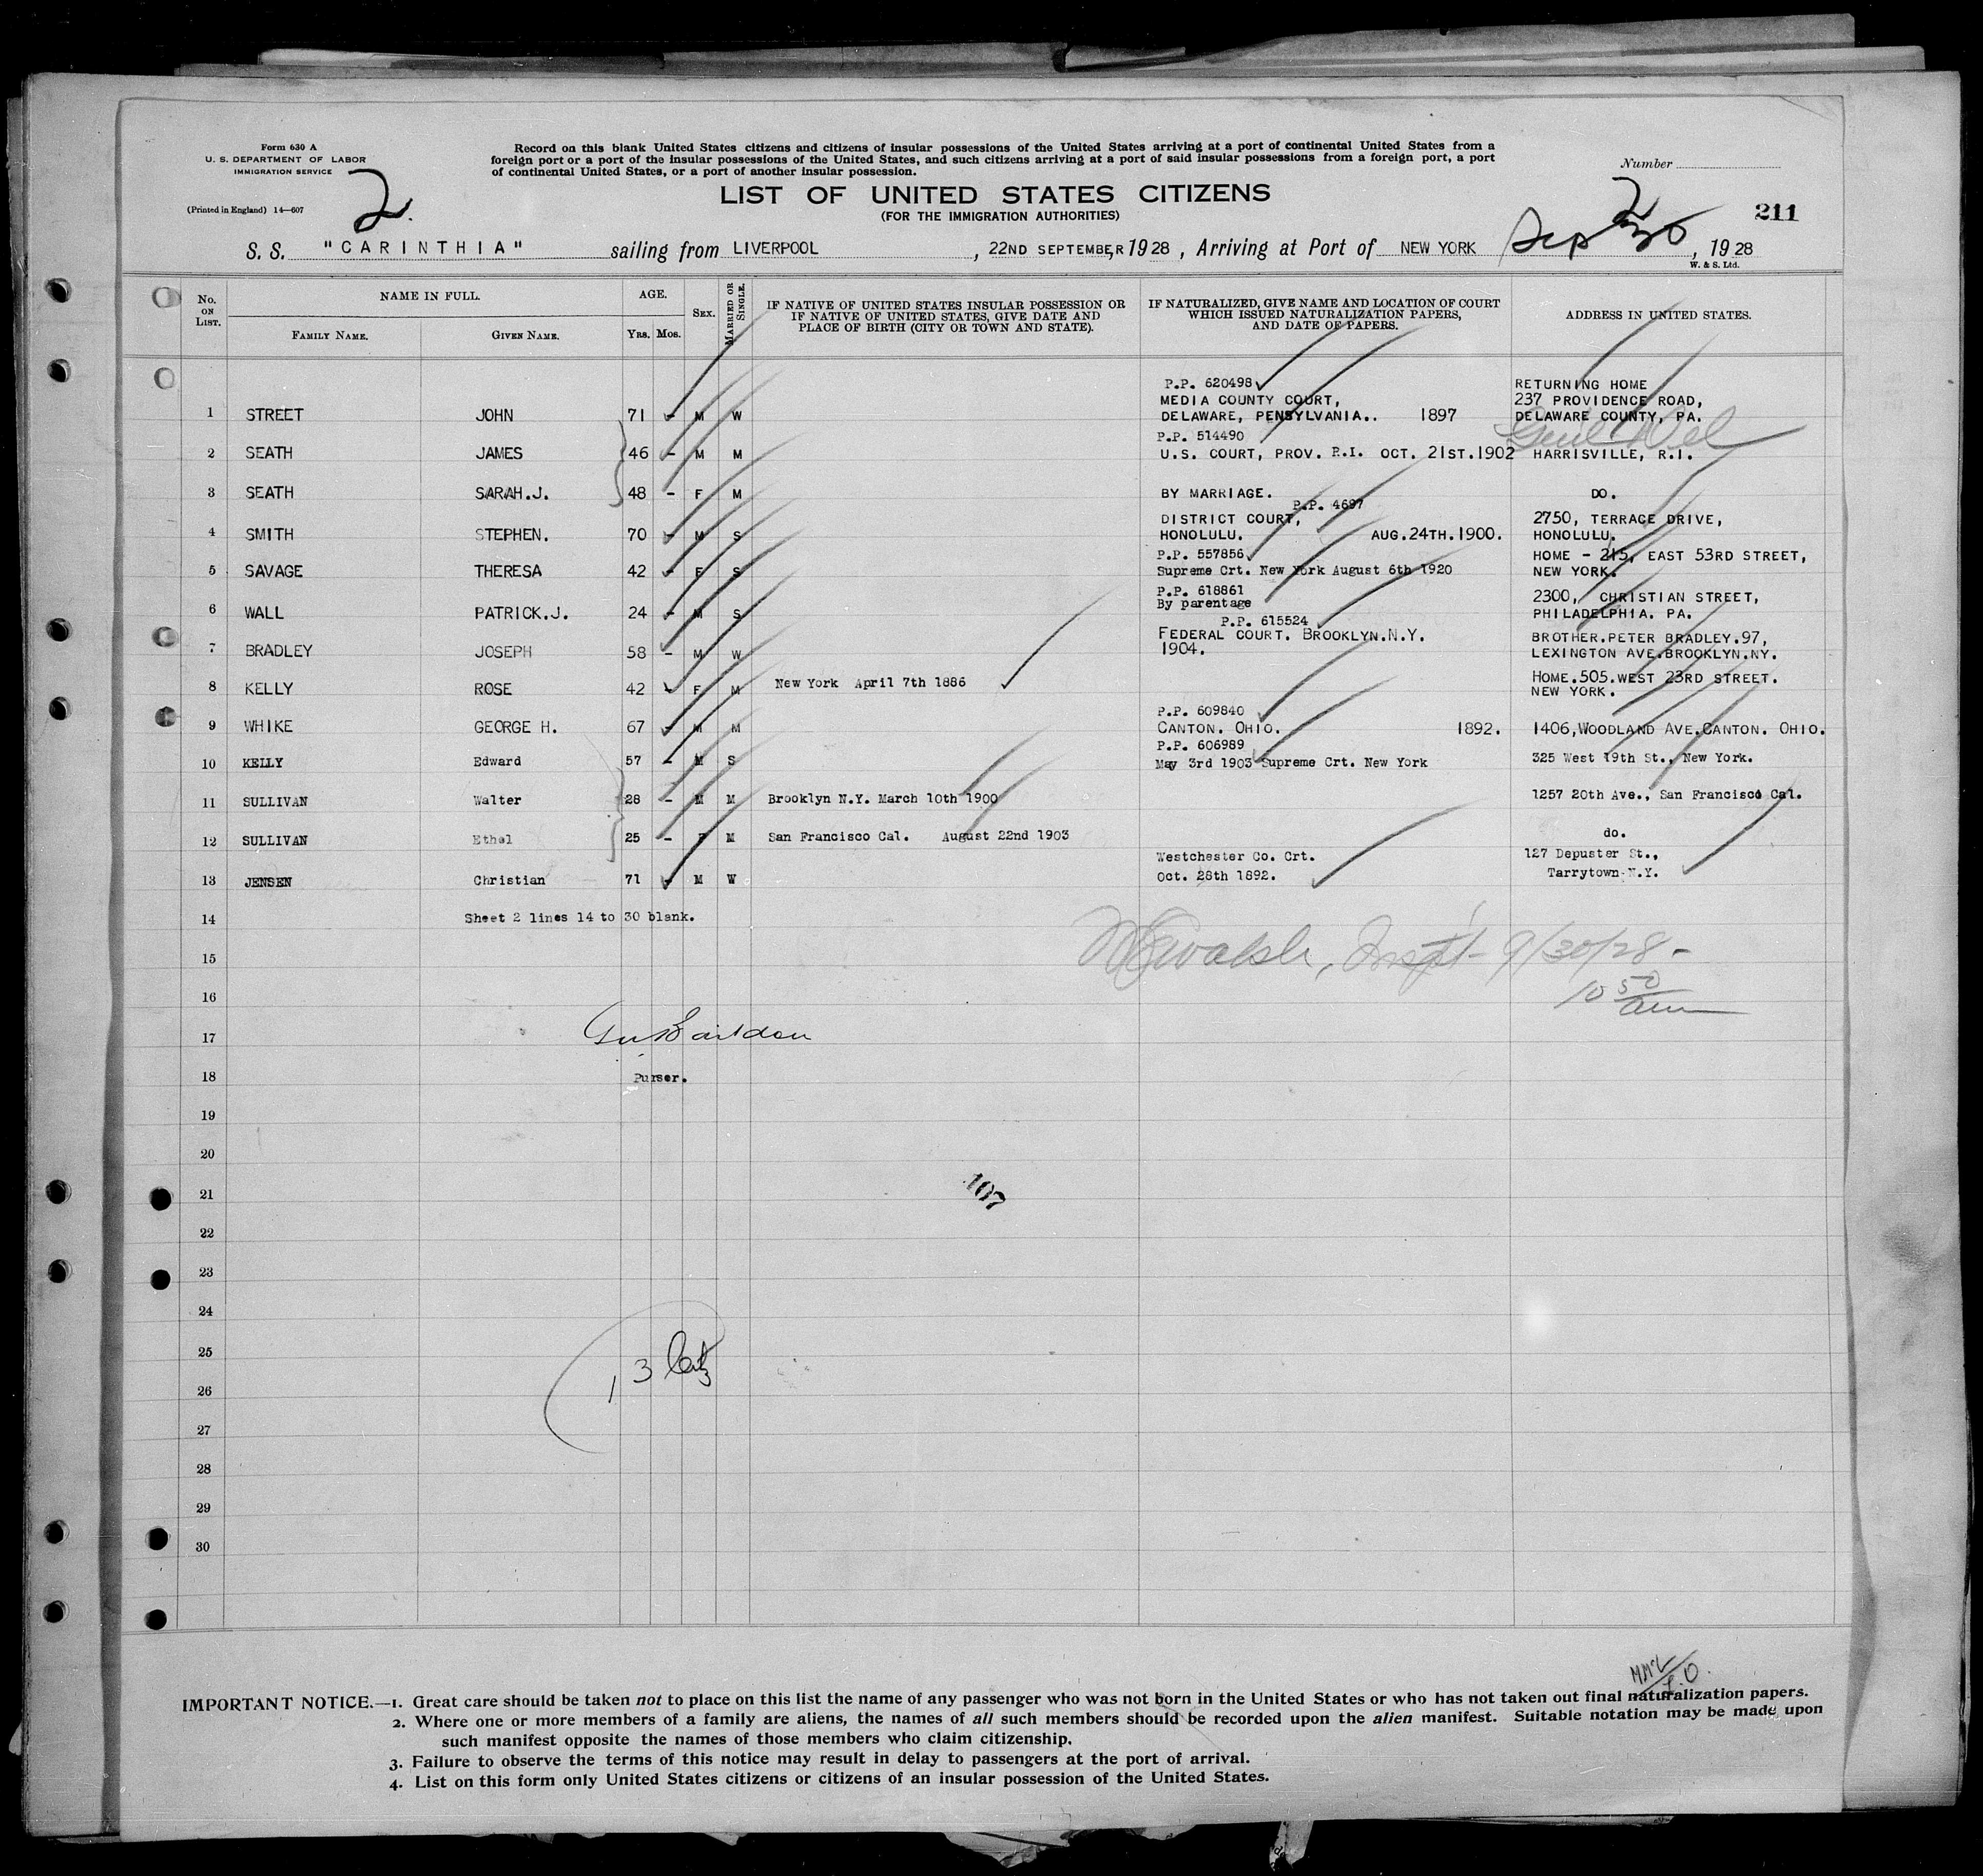 Form 630 A
U. S. DEPARTMENT OF LABOR
IMMIGRATION SERVICE
(Printed in England) 14—607
2.
Record on this blank United States citizens and citizens of insular possessions of the United States arriving at a port of continental United States from a
foreign port or a port of the insular possessions of the United States, and such citizens arriving at a port of said insular possessions from a foreign port, a port
of continental United States, or a port of another insular possession.
LIST OF UNITED STATES CITIZENS
(FOR THE IMMIGRATION AUTHORITIES)
Number
2
211
S. S. "CARINTHIA" sailing from LIVERPOOL, 22ND SEPTEMBER, 1928, Arriving at Port of NEW YORK Sep 30, 1928
W. & S. Ltd.
No. ON LIST.
NAME IN FULL.
FAMILY NAME.
GIVEN NAME.
AGE.
YRS. MOS.
SEX.
MARRIED OR SINGLE.
IF NATIVE OF UNITED STATES INSULAR POSSESSION OR
IF NATIVE OF UNITED STATES, GIVE DATE AND
PLACE OF BIRTH (CITY OR TOWN AND STATE).
IF NATURALIZED, GIVE NAME AND LOCATION OF COURT
WHICH ISSUED NATURALIZATION PAPERS,
AND DATE OF PAPERS.
ADDRESS IN UNITED STATES.
P.P. 620498 RETURNING HOME
MEDIA COUNTY COURT, 237 PROVIDENCE ROAD,
1 STREET JOHN 71 - M W DELAWARE, PENSYLVANIA.. 1897 DELAWARE COUNTY, PA.
P.P. 514490 Genl Del
2 SEATH JAMES 46 - M M U.S. COURT, PROV. R.I. OCT. 21ST.1902 HARRISVILLE, R.I.
3 SEATH SARAH.J. 48 - F M BY MARRIAGE. DO.
P.P. 4697
DISTRICT COURT, 2750, TERRACE DRIVE,
4 SMITH STEPHEN. 70 - M S HONOLULU. AUG.24TH.1900. HONOLULU.
P.P. 557856 HOME - 215, EAST 53RD STREET,
5 SAVAGE THERESA 42 - F S Supreme Crt. New York August 6th 1920 NEW YORK.
P.P. 618861 2300, CHRISTIAN STREET,
6 WALL PATRICK.J. 24 - M S By parentage PHILADELPHIA. PA.
P.P. 615524
FEDERAL COURT. BROOKLYN.N.Y. BROTHER.PETER BRADLEY.97,
7 BRADLEY JOSEPH 58 - M W 1904. LEXINGTON AVE.BROOKLYN.NY.
8 KELLY ROSE 42 - F M New York April 7th 1886 HOME.505.WEST 23RD STREET.
NEW YORK.
P.P. 609840
9 WHIKE GEORGE H. 67 - M M CANTON. OHIO. 1892. 1406,WOODLAND AVE.CANTON. OHIO.
P.P. 606989
10 KELLY Edward 57 - M S May 3rd 1903 Supreme Crt. New York 325 West 19th St., New York.
11 SULLIVAN Walter 28 - M M Brooklyn N.Y. March 10th 1900 1257 20th Ave., San Francisco Cal.
12 SULLIVAN Ethel 25 - F M San Francisco Cal. August 22nd 1903 do.
Westchester Co. Crt. 127 Depuster St.,
13 JENSEN Christian 71 - M W Oct. 28th 1892. Tarrytown N.Y.
14 Sheet 2 lines 14 to 30 blank.
15 Walsh, Inspt- 9/30/28-
16 10 50 am
17
18 Purser.
19
20
21 107
22
23
24
25 13
26
27
28
29
30
IMPORTANT NOTICE.—1. Great care should be taken not to place on this list the name of any passenger who was not born in the United States or who has not taken out final naturalization papers.
2. Where one or more members of a family are aliens, the names of all such members should be recorded upon the alien manifest. Suitable notation may be made upon
such manifest opposite the names of those members who claim citizenship.
3. Failure to observe the terms of this notice may result in delay to passengers at the port of arrival.
4. List on this form only United States citizens or citizens of an insular possession of the United States.